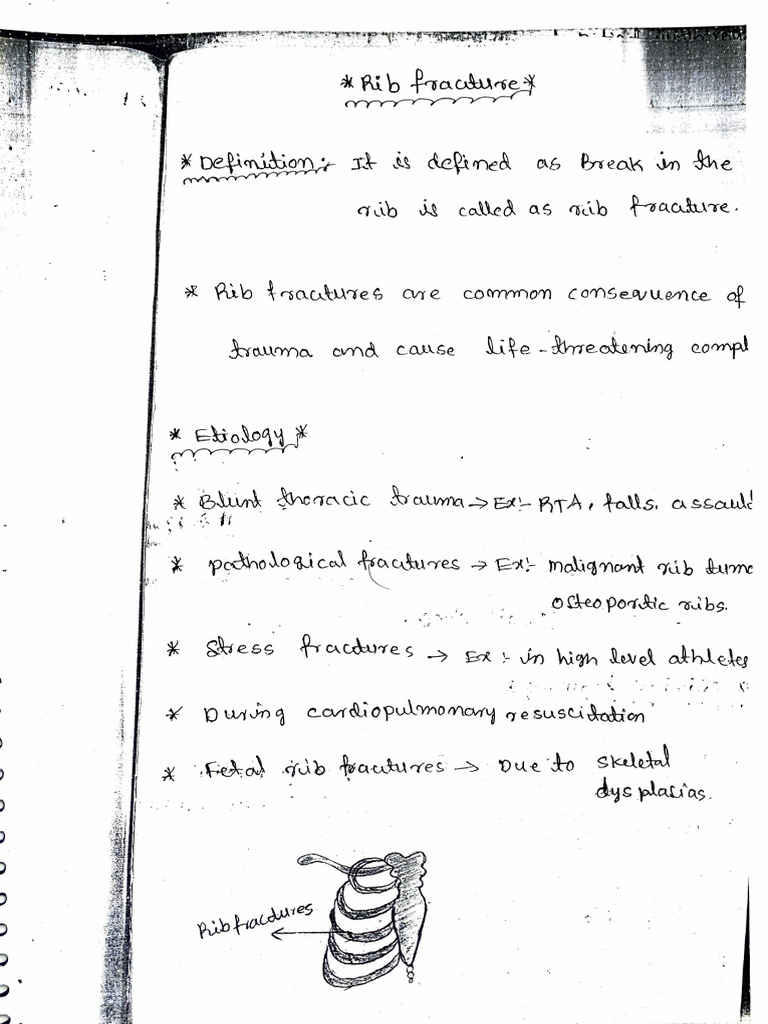 *Rib fracture*
*Definition:- It is defined as Break in the
rib is called as rib fracture.
* Rib fractures are common consequence of
trauma and cause life-threatening compl
* Etiology *
* Blunt thoracic trauma → Ex:- RTA, falls, assault
* pathological fractures → Ex:- malignant rib tumo
osteoporotic ribs.
* Stress fractures → Ex :- in high level athletes
* During cardiopulmonary resuscitation
* Fetal rib fractures → Due to skeletal
dysplasias.
Rib fractures